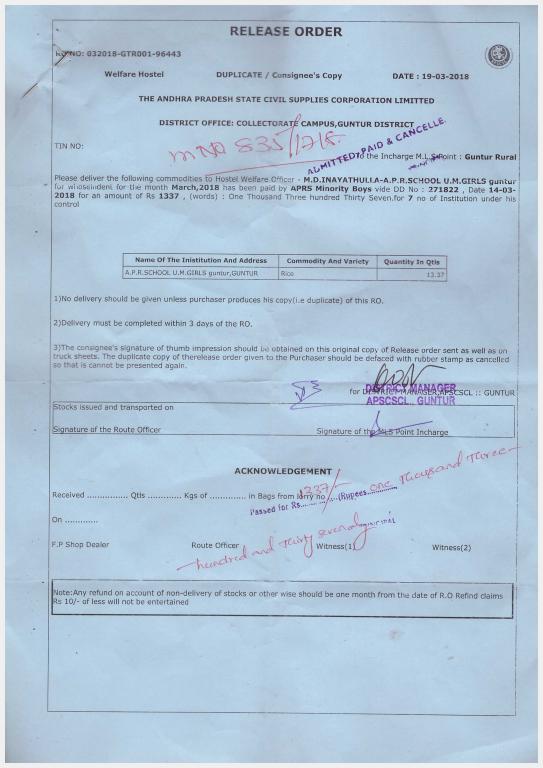 RELEASE ORDER
RO NO: 032018-GTR001-96443
Welfare Hostel DUPLICATE / Consignee's Copy DATE : 19-03-2018
THE ANDHRA PRADESH STATE CIVIL SUPPLIES CORPORATION LIMITTED
DISTRICT OFFICE: COLLECTORATE CAMPUS,GUNTUR DISTRICT
TIN NO:
M NO 835/17-18
ADMITTED, PAID & CANCELLE.
To the Incharge M.L.S Point : Guntur Rural
Please deliver the following commodities to Hostel Welfare Officer - M.D.INAYATHULLA-A.P.R.SCHOOL U.M.GIRLS guntur
for whoseindent for the month March,2018 has been paid by APRS Minority Boys vide DD No : 271822 , Date 14-03-
2018 for an amount of Rs 1337 , (words) : One Thousand Three hundred Thirty Seven.for 7 no of Institution under his
control
Name Of The Inistitution And Address Commodity And Variety Quantity In Qtls
A.P.R.SCHOOL U.M.GIRLS guntur,GUNTUR Rice 13.37
1)No delivery should be given unless purchaser produces his copy(i.e duplicate) of this RO.
2)Delivery must be completed within 3 days of the RO.
3)The consignee's signature of thumb impression should be obtained on this original copy of Release order sent as well as on
truck sheets. The duplicate copy of therelease order given to the Purchaser should be defaced with rubber stamp as cancelled
so that is cannot be presented again.
for DISTRICT MANAGER,APSCSCL :: GUNTUR
DISTRICT MANAGER
APSCSCL., GUNTUR
Stocks issued and transported on
Signature of the Route Officer Signature of the MLS Point Incharge
ACKNOWLEDGEMENT
Received ................ Qtls ............. Kgs of .............. in Bags from lorry no
Passed for Rs. 1337/- (Rupees one Thousand Three
hundred and Thirty seven only
On .............
F.P Shop Dealer Route Officer Witness(1) Witness(2)
Note:Any refund on account of non-delivery of stocks or other wise should be one month from the date of R.O Refind claims
Rs 10/- of less will not be entertained